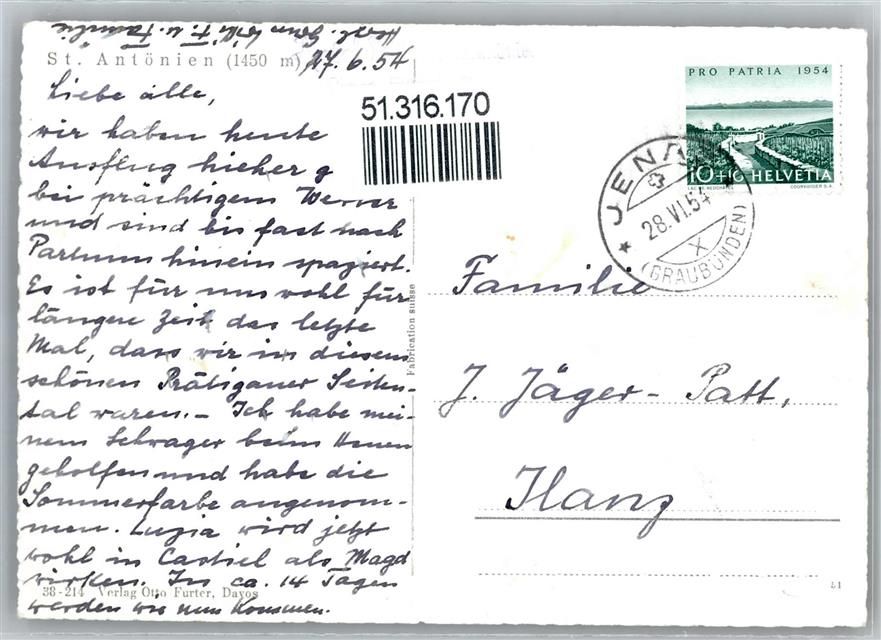 Herzl. Grüsse Willi F. u. Familie
St. Antönien (1450 m) 27. 6. 54
Liebe alle,
wir haben heute
Ausflug hieher g
bei prächtigem Wetter
und sind bis fast nach
Partnun hinein spaziert.
Es ist für uns wohl für
längere Zeit das letzte
Mal, dass wir in diesem
schönen Prätigauer Seiten-
tal waren. – Ich habe mei-
nem Schwager beim Heuen
geholfen und habe die
Sommerfarbe angenom-
men. Luzia wird jetzt
wohl in Castiel als Magd
wirken. In ca. 14 Tagen
38-214 Verlag Otto Furter, Davos
werden wir nun kommen.
Fabrication suisse
51.316.170
PRO PATRIA 1954
10+10 HELVETIA
COURVOISIER S.A.
JENA
28.VI.54
X
(GRAUBÜNDEN)
Familie
J. Jäger - Patt,
Ilanz